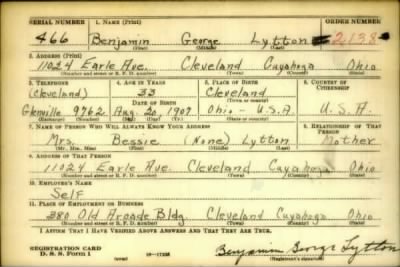 SERIAL NUMBER 1. NAME (Print) ORDER NUMBER
466 Benjamin George Lytton 2138
(First) (Middle) (Last)
2. ADDRESS (Print)
11024 Earle Ave. Cleveland Cuyahoga Ohio
(Number and street or R. F. D. number) (Town) (County) (State)
3. TELEPHONE 4. AGE IN YEARS 5. PLACE OF BIRTH 6. COUNTRY OF CITIZENSHIP
(Cleveland) 33 Cleveland
DATE OF BIRTH (Town or county)
Glenville 9762 Aug. 20, 1907 Ohio - U.S.A U.S.A.
(Exchange) (Number) (Mo.) (Day) (Yr.) (State or country)
7. NAME OF PERSON WHO WILL ALWAYS KNOW YOUR ADDRESS 8. RELATIONSHIP OF THAT PERSON
Mrs. Bessie (None) Lytton Mother
(Mr., Mrs., Miss) (First) (Middle) (Last)
9. ADDRESS OF THAT PERSON
11024 Earle Ave. Cleveland Cuyahoga Ohio
(Number and street or R. F. D. number) (Town) (County) (State)
10. EMPLOYER'S NAME
Self
11. PLACE OF EMPLOYMENT OR BUSINESS
380 Old Arcade Bldg. Cleveland Cuyahoga Ohio
(Number and street or R. F. D. number) (Town) (County) (State)
I AFFIRM THAT I HAVE VERIFIED ABOVE ANSWERS AND THAT THEY ARE TRUE.
REGISTRATION CARD
D. S. S. Form 1 (over) 16-17105 Benjamin George Lytton
(Registrant's signature)